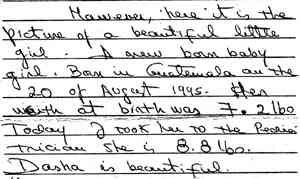 However, here it is the
picture of a beautiful little
girl. A new born baby
girl. Born in Guatemala on the
20 of August 1995. Her
weith at birth was 7.2 lbs
Today I took her to the Pedia
trician she is 8.8 lbs.
Dasha is beautiful.